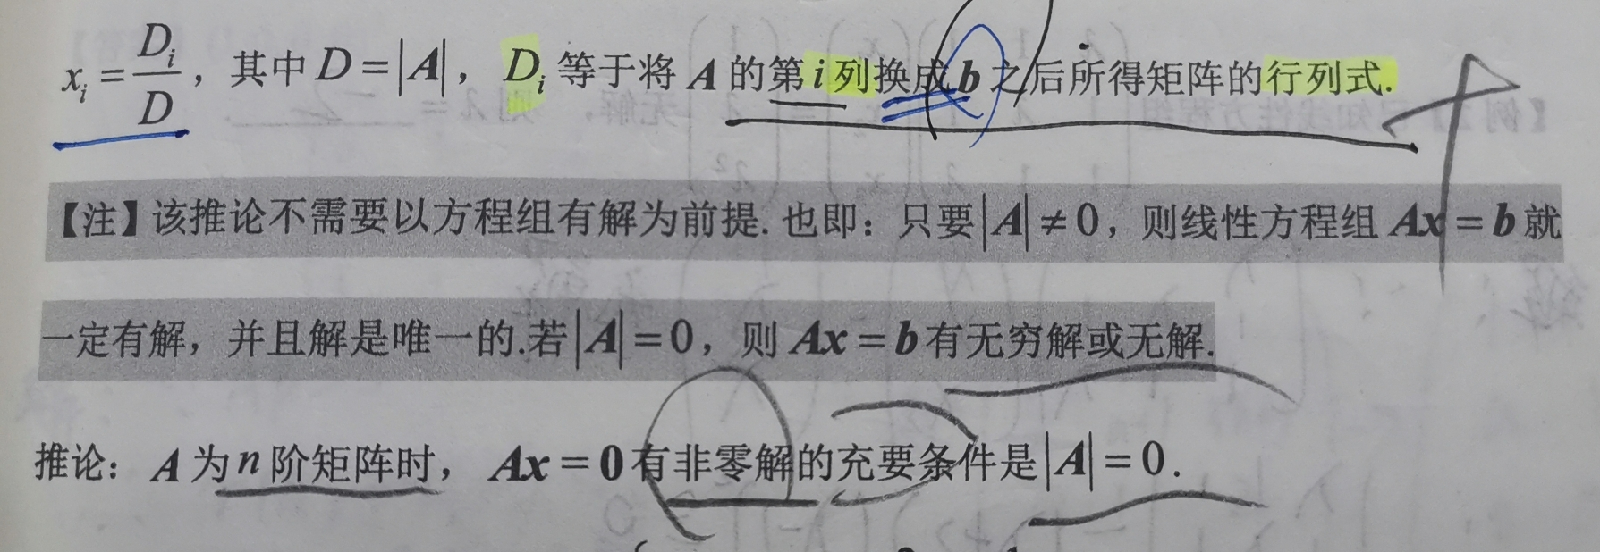 x_i = D_i/D，其中 D = |A|，D_i 等于将 A 的第 i 列换成 b 之后所得矩阵的行列式.
【注】该推论不需要以方程组有解为前提. 也即：只要 |A| ≠ 0，则线性方程组 Ax = b 就
一定有解，并且解是唯一的.若 |A| = 0，则 Ax = b 有无穷解或无解.
推论：A 为 n 阶矩阵时，Ax = 0 有非零解的充要条件是 |A| = 0.